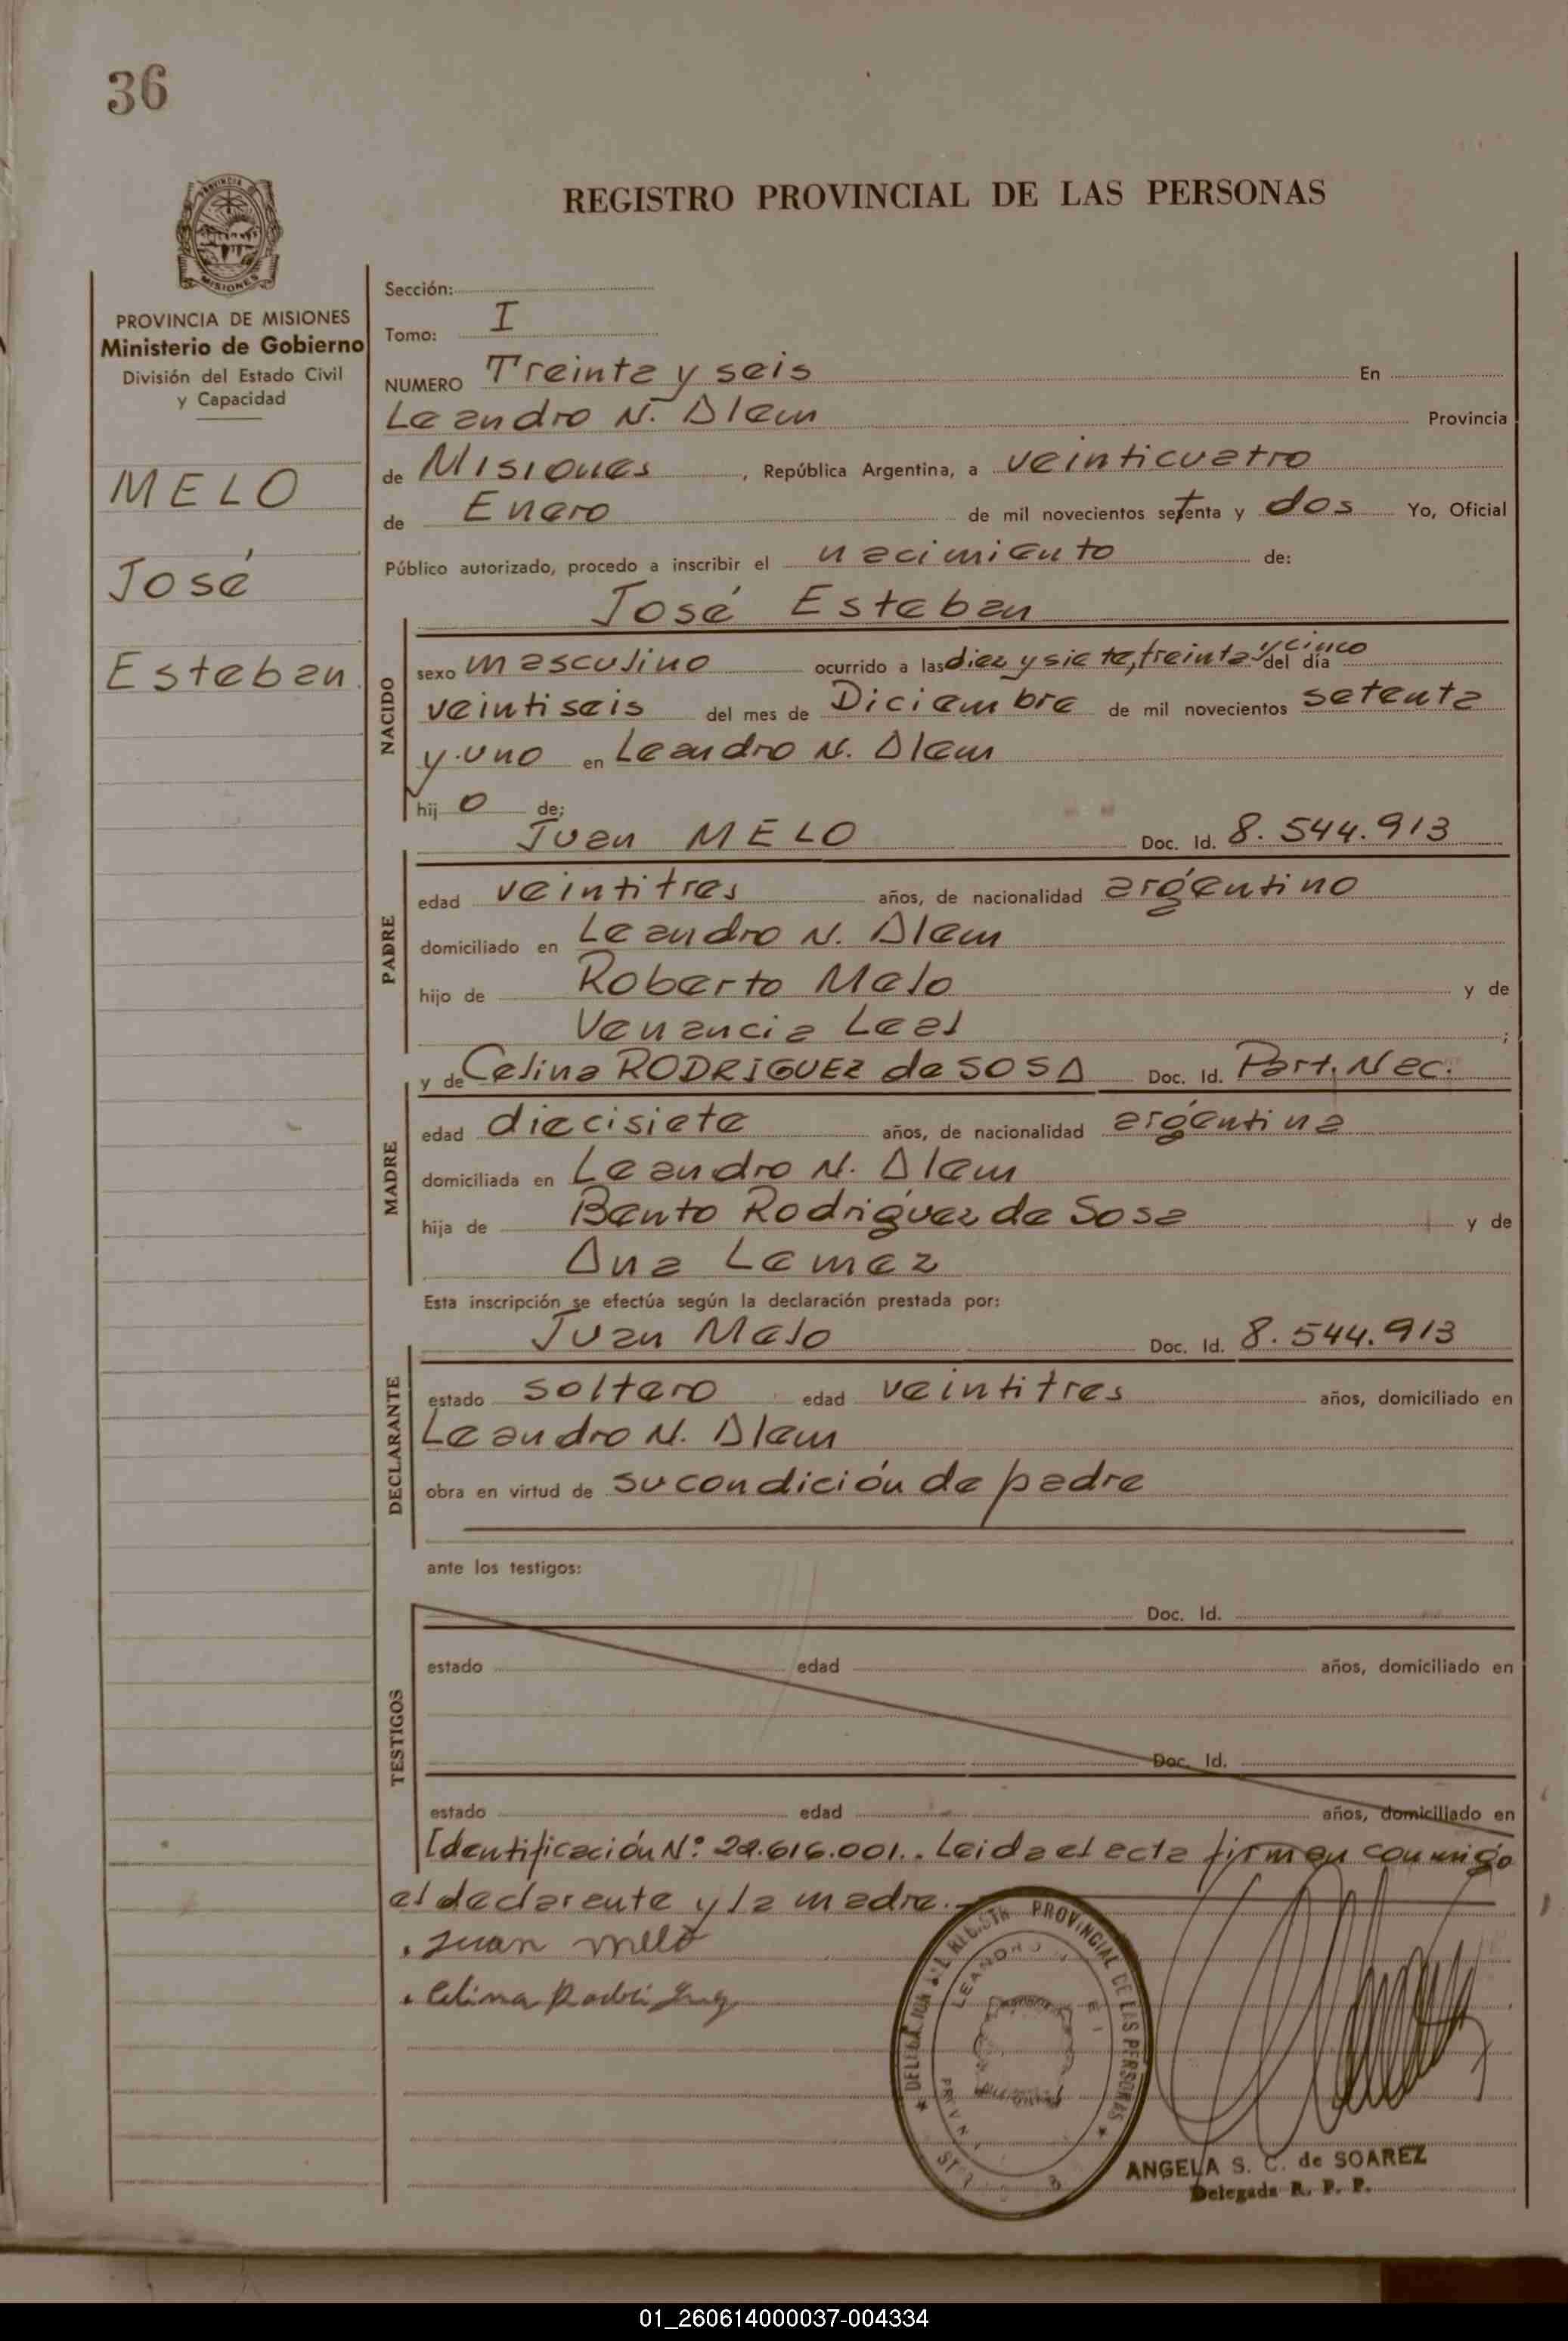 36
REGISTRO PROVINCIAL DE LAS PERSONAS
PROVINCIA DE MISIONES
Ministerio de Gobierno
División del Estado Civil
y Capacidad
MELO
José
Esteban
Sección:
Tomo: I
NUMERO Treinta y seis En
Leandro N. Alem Provincia
de Misiones, República Argentina, a veinticuatro
de Enero de mil novecientos setenta y dos Yo, Oficial
Público autorizado, procedo a inscribir el nacimiento de:
José Esteban
NACIDO
sexo masculino ocurrido a las diez y siete, treinta y cinco del día
veintiseis del mes de Diciembre de mil novecientos setenta
y uno en Leandro N. Alem
hijo de:
Juan MELO Doc. Id. 8.544.913
PADRE
edad veintitres años, de nacionalidad argentino
domiciliado en Leandro N. Alem
hijo de Roberto Melo y de
Venancia Leal ;
y de Celina RODRIGUEZ de SOSA Doc. Id. Part. Nac.
MADRE
edad diecisiete años, de nacionalidad argentina
domiciliada en Leandro N. Alem
hija de Bento Rodriguez de Sosa y de
Ana Lemez
Esta inscripción se efectúa según la declaración prestada por:
Juan Melo Doc. Id. 8.544.913
DECLARANTE
estado soltero edad veintitres años, domiciliado en
Leandro N. Alem
obra en virtud de su condición de padre
ante los testigos:
TESTIGOS
Doc. Id.
estado edad años, domiciliado en
Doc. Id.
estado edad años, domiciliado en
Identificación Nº 22.616.001.. Leida el acta firman conmigo
el declarante y la madre.-
Juan melo
Celina Rodriguez
PROVINCIAL DE LAS PERSONAS
ANGELA S. C. de SOAREZ
Delegada R. P. P.
01_260614000037-004334